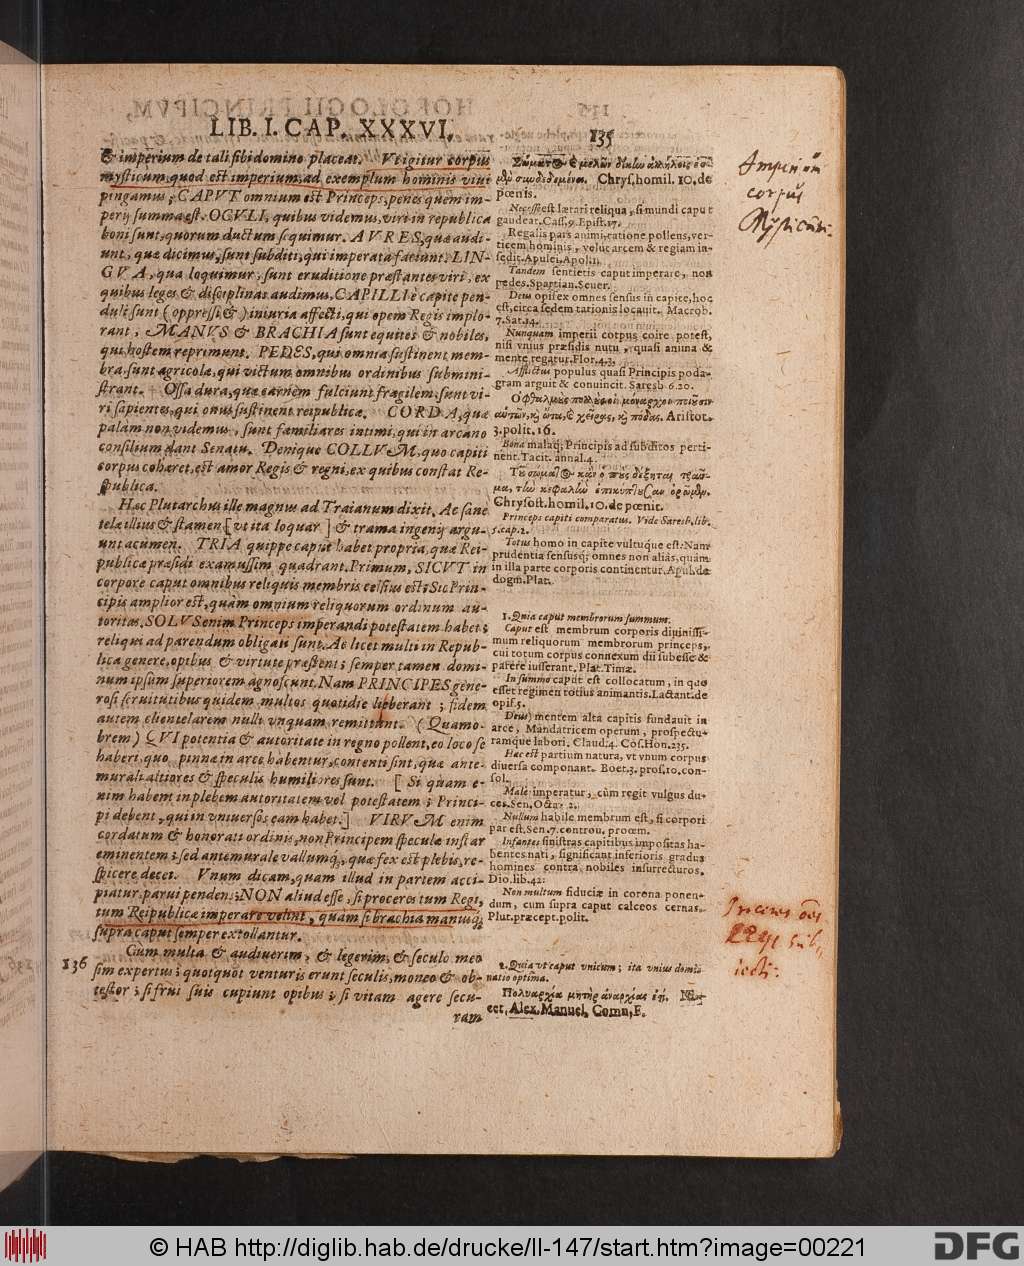 LIB. I. CAP. XXXVI.
135
& imperium de tali sibi domino placeat. Vt igitur corpus
mysticum, quod est imperium, ad exemplum hominis vivi
pingamus; CAPVT omnium est Princeps, penes quem im-
perij summa est. OCVLI, quibus videmus, viri in republica
boni sunt, quorum ductum sequimur. AVRES, quæ audi-
unt, quæ dicimus, sunt subditi, qui imperata faciunt. LIN-
GVA, qua loquimur, sunt eruditione præstantes viri, ex
quibus leges & disciplinas audimus. CAPILLI è capite pen-
duli sunt (oppressi, &) iniuria affecti, qui opem Regis implo-
rant, MANVS & BRACHIA sunt equites & nobiles,
qui hostem reprimunt. PEDES, qui omnia sustinent mem-
bra, sunt agricolæ, qui victum omnibus ordinibus submini-
strant. Ossa dura, quæ carnem fulciunt fragilem, sunt vi-
ri sapientes, qui onus sustinent reipublicæ. CORDA, quæ
palam non videmus, sunt familiares intimi, qui in arcano
consilium dant Senatu. Denique COLLVM, quo capiti
corpus cohæret, est amor Regis & regni, ex quibus constat Re-
spublica.
Hæc Plutarchus ille magnus ad Traianum dixit. Ac sane
tela illius & stamen [vt ita loquar] & trama ingenij argu-
unt acumen. TRIA quippe caput habet propria, quæ Rei-
publicæ præsidi examussim quadrant. Primum, SICVT in
corpore caput omnibus reliquis membris celsius est: Sic Prin-
cipis amplior est, quàm omnium reliquorum ordinum au-
toritas. SOLVS enim Princeps imperandi potestatem habet;
reliqui ad parendum obligati sunt. Ac licet multi in Repub-
lica genere, opibus & virtute præstent; semper tamen domi-
num ipsum superiorem agnoscunt. Nam PRINCIPES gene-
rosi servitutibus quidem multos quotidie liberant; fidem
autem clientelarem nulli vnquam remittunt. (Quamo-
brem) QVI potentia & autoritate in regno pollent, eo loco se
haberi, quo pinnæ in arce habentur, contenti sint, quæ ante-
murali altiores & speculis humiliores sunt. [Si quam e-
nim habent in plebem autoritatem vel potestatem; Princi-
pi debent, qui in vniversos eam habet.] VIRVM enim
cordatum & honorati ordinis, non Principem speculæ instar
eminentem; sed antemurale vallumq;, quæ fex est plebis, re-
spicere decet. Vnum dicam, quam illud in partem acci-
piatur, parui pendens; NON aliud esse, si proceres tum Regi,
tum Reipublicæ imperare velint, quàm si brachia manusq;
supra caput semper extollantur.
136 Cum multa & audiverim, & legerim, & seculo meo
sim expertus; quotquot venturis erunt seculis, moneo & ob-
testor; si frui suis cupiunt opibus; si vitam agere secu-
ram
Chrys. homil. 10. de
pœnis.
Necesse est lætari reliqua, si mundi caput
gaudeat. Cass. 9. Epist. 17.
Regalis pars animi, ratione pollens, ver-
ticem hominis, velut arcem & regiam in-
sedit. Apulei. Apol. 1.
Tandem sentietis caput imperare, non
pedes. Spartian. Seuer.
Deus opifex omnes sensus in capite, hoc
est, circa sedem rationis locauit. Macrob.
7. Sat. 14.
Nunquam imperii corpus coire potest,
nisi vnius præsidis nutu, quasi anima &
mente regatur. Flor. 4. 3.
Afflictus populus quasi Principis poda-
gram arguit & conuincit. Saresb. 6. 20.
Aristot.
3. polit. 16.
Bona malaq; Principis ad subditos perti-
nent. Tacit. annal. 4.
Chrysost. homil. 10. de pœnit.
Princeps capiti comparatus. Vide Saresb. lib.
5. cap. 2.
Totus homo in capite vultuque est: Nam
prudentia sensusq; omnes non alias, quàm
in illa parte corporis continentur. Apul. de
dogm. Plat.
1. Quia caput membrorum summum.
Caput est membrum corporis diuinissi-
mum reliquorum membrorum princeps,
cui totum corpus connexum dii subesse &
parere iusserant. Plat. Timæ.
In summo caput est collocatum, in quo
esset regimen totius animantis. Lactant. de
opif. 5.
Deus) mentem alta capitis fundauit in
arce, Mandatricem operum, prospectu-
ramque labori. Claud. 4. Cos. Hon. 235.
Hæc est partium natura, vt vnum corpus
diuersa componant. Boet. 3. pros. 10. con-
sol.
Malè imperatur, cùm regit vulgus du-
ces. Sen. Octa. 2.
Nullum habile membrum est, si corpori
par est. Sen. 7. controu. proœm.
Infantes sinistras capitibus impositas ha-
bentes nati, significant inferioris gradus
homines contra nobiles insurrecturos.
Dio. lib. 42.
Non multum fiduciæ in corona ponen-
dum, cum supra caput calceos cernas.
Plut. præcept. polit.
2. Quia vt caput vnicum; ita vnius domi-
natio optima.
Πολυαρχία μητὴρ ἀναρχίας
Alex. Manuel. Comn. F.
Imperium
corpus
Mysticum.
Proceres
Regi sub-
iecti.
© HAB http://diglib.hab.de/drucke/li-147/start.htm?image=00221
DFG